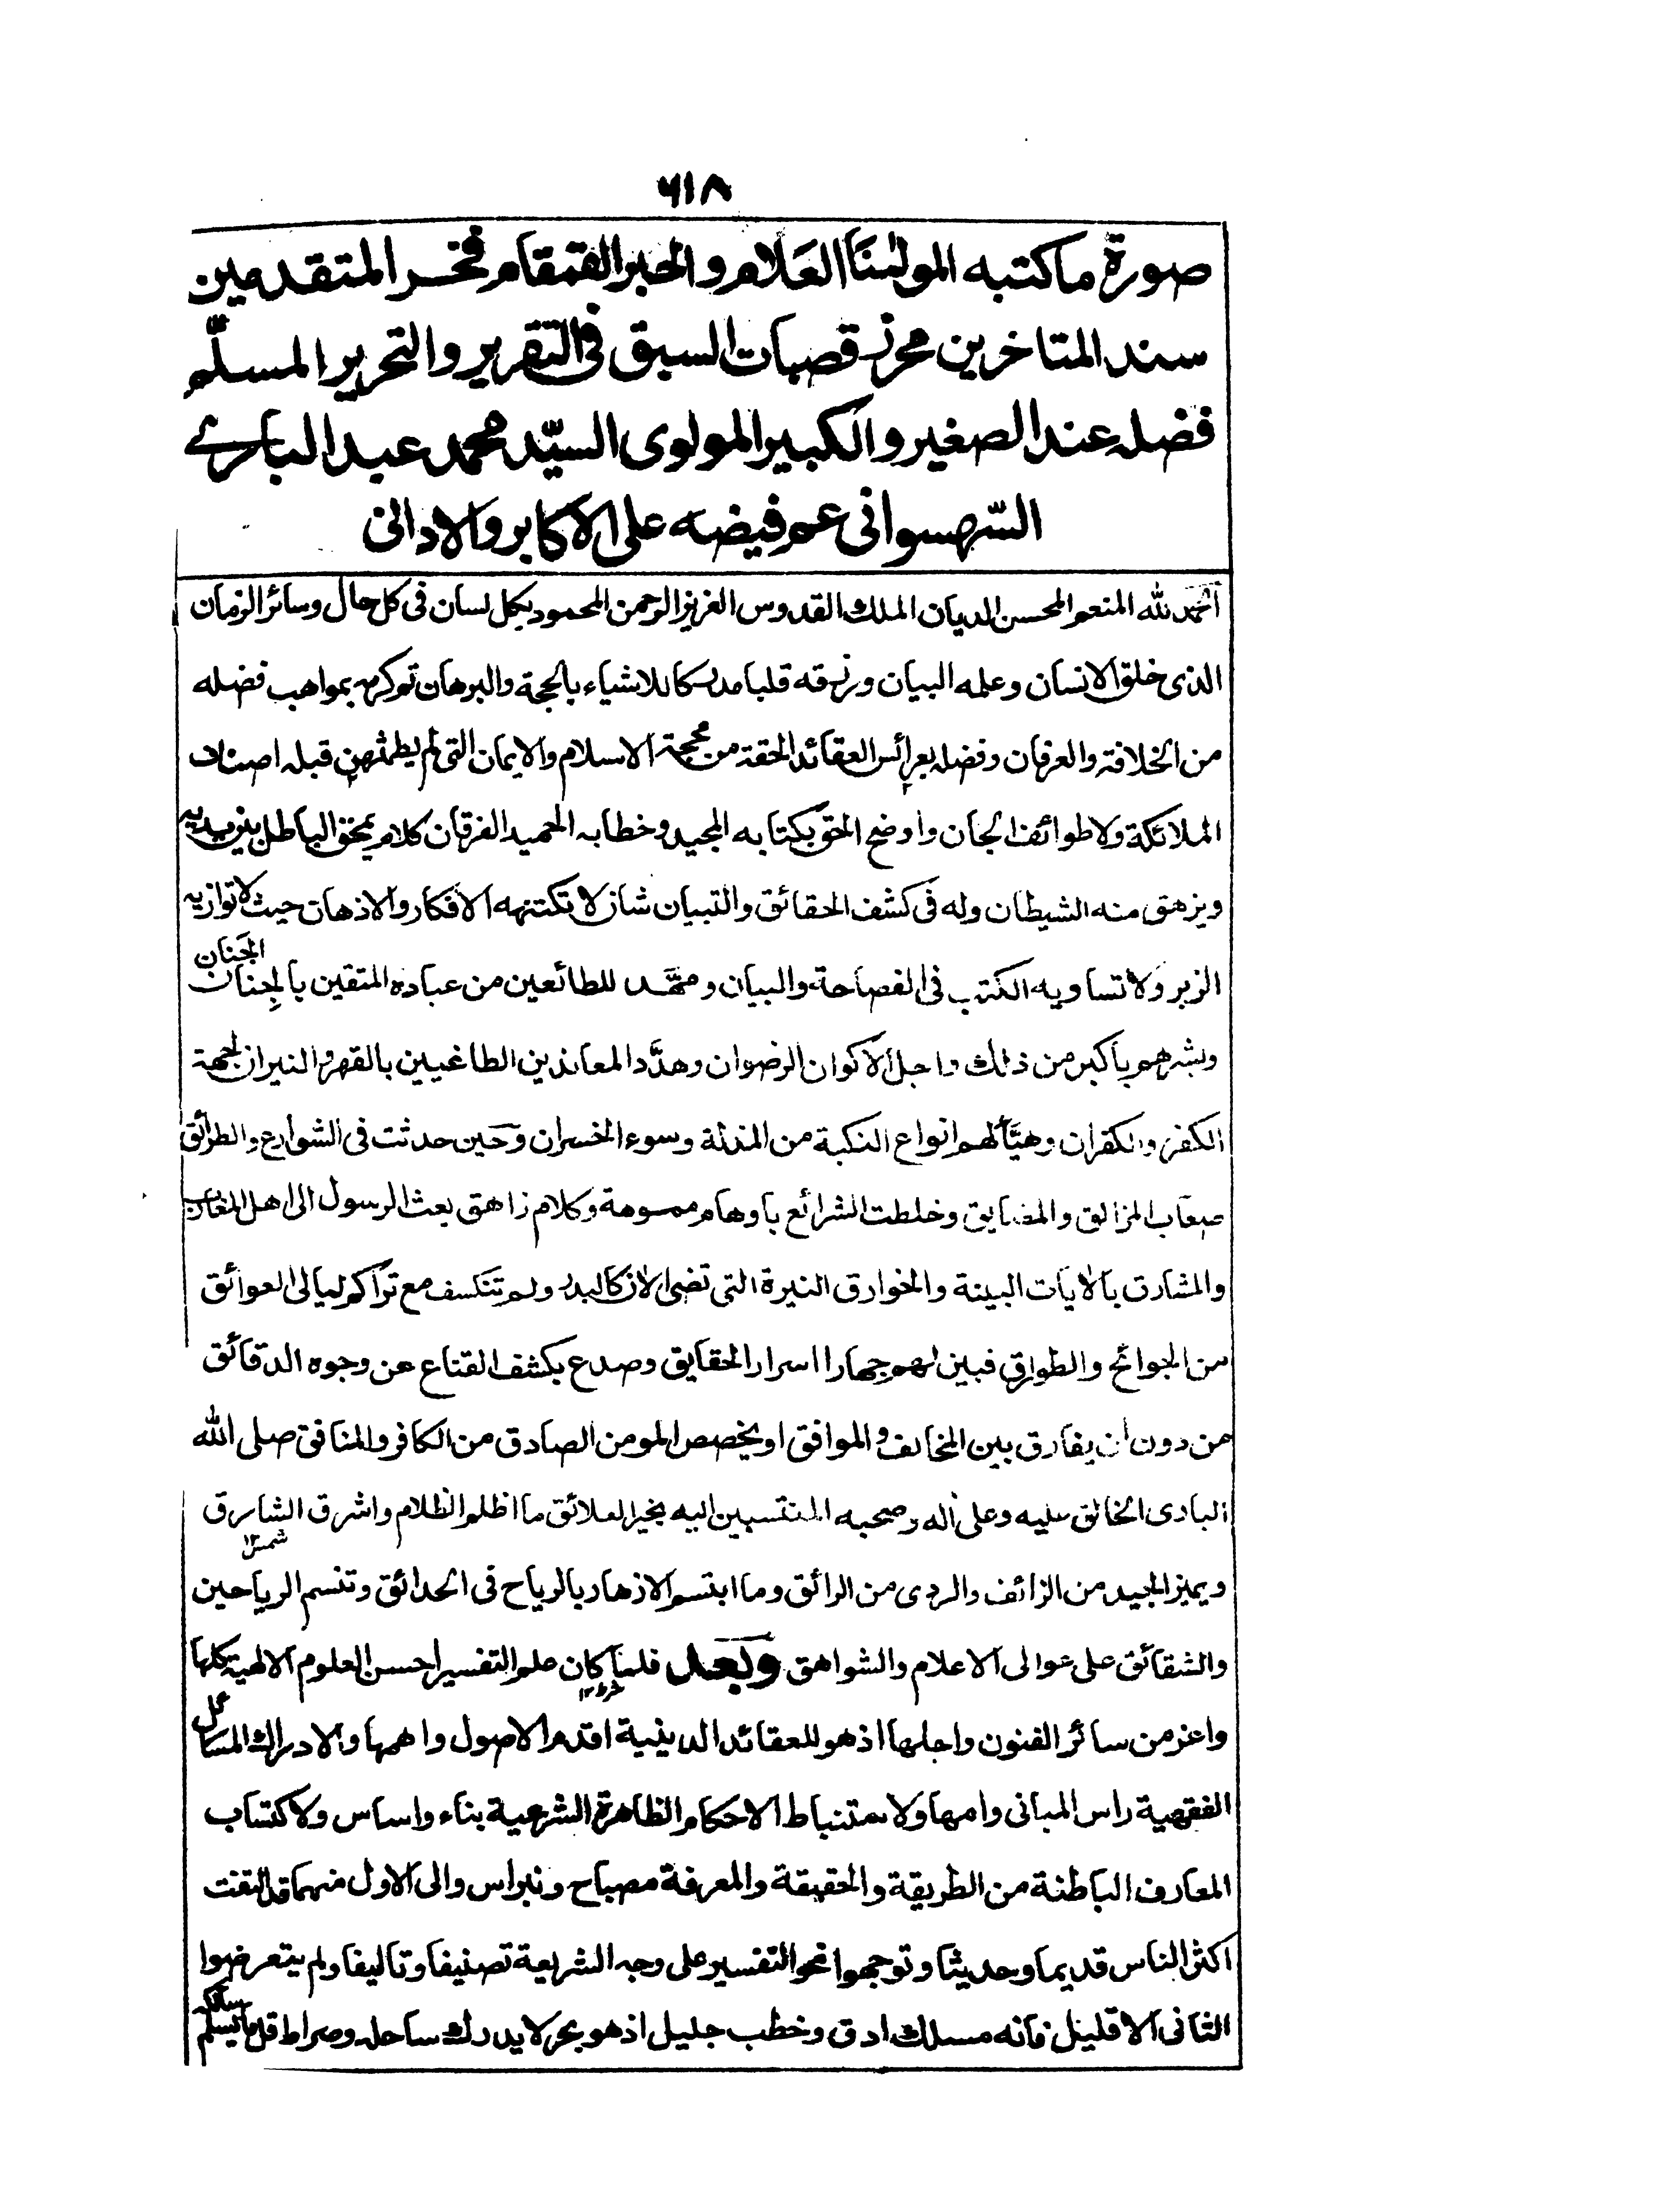 ٦١٨
صورة ما كتبه المولٰنا العلام والحبر القمقام فخر المتقدمين
سند المتاخرين محرز قصبات السبق فى التقرير والتحرير المسلّم
فضله عند الصغير والكبير المولوى السيّد محمد عبد البارے
السّهسوانى عم فيضه على الاكابر والادانى
الحمد لله المنعم المحسن الديان الملك القدوس العزيز الرحمن المحمود بكل لسان فى كل حال وسائر الزمان
الذى خلق الانسان وعلمه البيان ورزقه قلبا مدركا للاشياء بالحجة والبرهان ثم كرمه بمواهب فضله
من الخلافة والعرفان وفضله بعرائس العقائد الحقة من محجة الاسلام والايمان التى لم يطمثهن قبله اصناف
الملائكة ولا طوائف الجان واوضح الحق بكتابه المجيد وخطابه الحميد الفرقان كلام يمحق الباطل بين يديه
ويزهق منه الشيطان وله فى كشف الحقائق والتبيان شان لا تكتنهه الافكار والاذهان حيث لا توازيه
الزبر ولا تساويه الكتب فى الفصاحة والبيان ومهَّد للطائعين من عباده المتقين بالجِنان الجَنان
وبشرهم باكبر من ذلك واجل الاكوان الرضوان وهدَّد المعاندين الطاغيين بالقهر والنيران لجهة
الكفر والكفران وهيَّأ لهم انواع النكبة من المذلة وسوء الخسران وحين حدثت فى الشوارع والطرائق
صعاب المزالق والمضايق وخلطت الشرائع باوهام مموهة وكلام زاهق بعث الرسول الى اهل المغارب
والمشارق بالاٰيات البينة والخوارق النيرة التى تضئ الاٰن كالبدر ولم تنكسف مع تراكم ليالى العوائق
من الجوائح والطوارق فبين لهم جهارا اسرار الحقايق وصدع بكشف القناع عن وجوه الدقائق
من دون ان يفارق بين المخالف والموافق او يخصص المومن الصادق من الكافر والمنافق صلى الله
البارى الخالق عليه وعلى اٰله وصحبه المنتسبين اليه بخير العلائق ما اظلم الظلام واشرق الشارق
شمس١٢
ويميز الجيد من الزائف والردى من الرائق وما ابتسم الازهار بالرياح فى الحدائق وتنسم الرياحين
والشقائق على عوالى الاعلام والشواهق وبعد فلما كان علم التفسير احسن العلوم الالهية كلها
واعز من سائر الفنون واجلها اذ هو للعقائد الدينية اقدم الاصول واهمها والادراك المسائل
الفقهية راس المبانى وامها ولاستنباط الاحكام الظاهرة الشرعية بناء واساس ولاكتساب
المعارف الباطنة من الطريقة والحقيقة والمعرفة مصباح ونبراس والى الاول منهما قد التفت
اكثر الناس قديما وحديثا وتوجهوا نحو التفسير على وجه الشريعة تصنيفا وتاليفا ولم يتعرضوا
الثانى الا قليل فانه مسلك ادق وخطب جليل اذ هو بحر لا يدرك ساحله وصراط قل ما يسلم سالكه